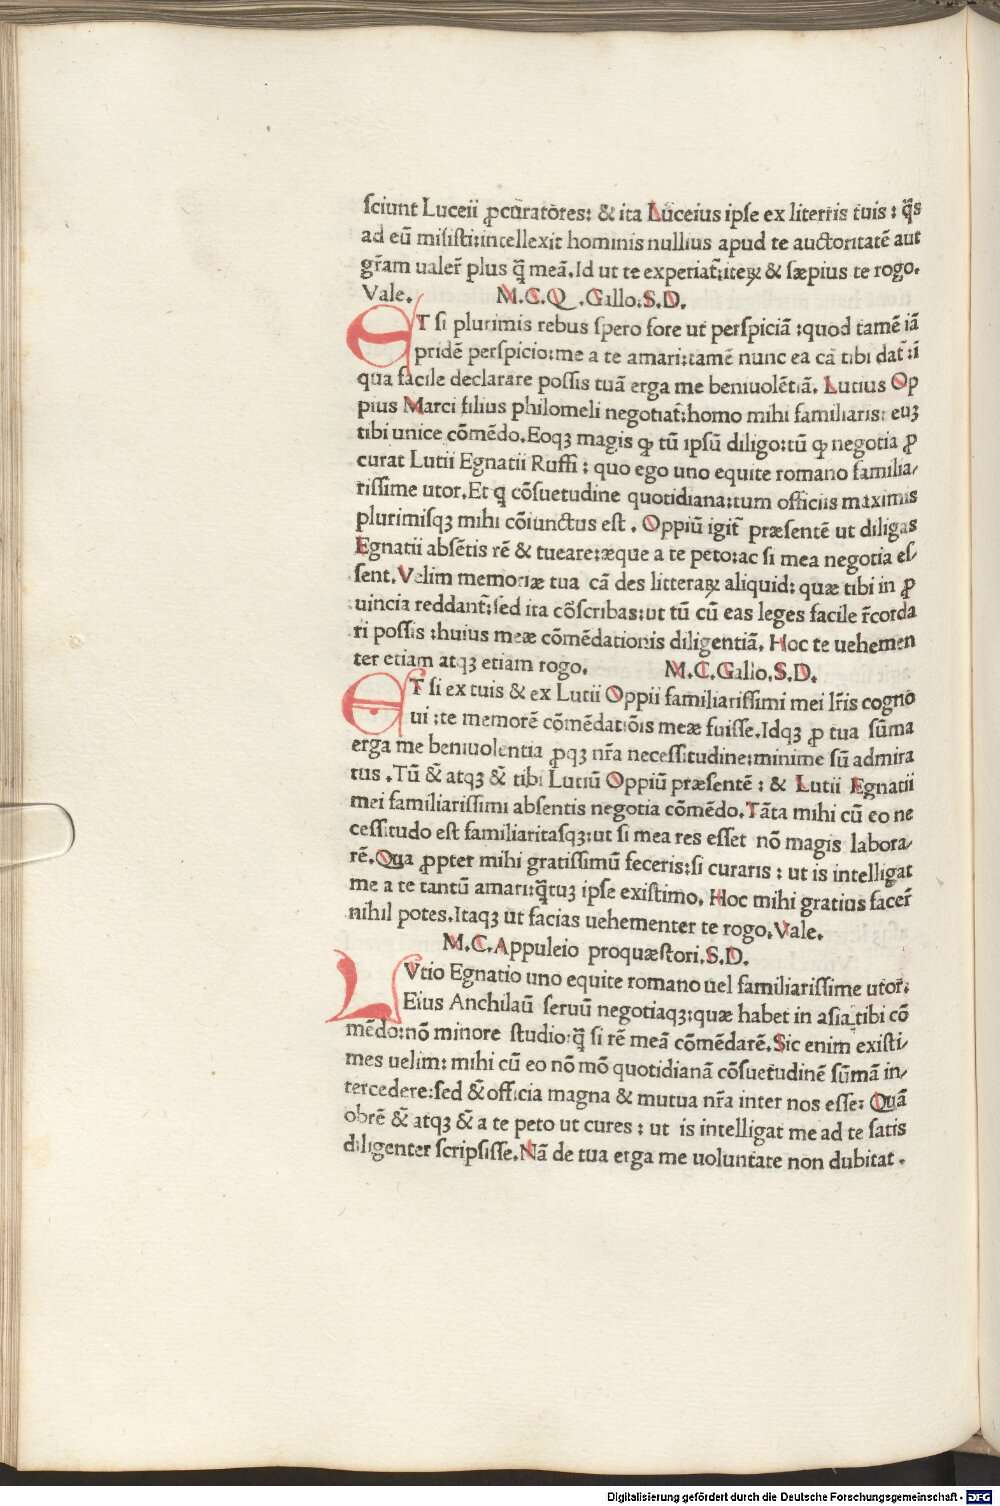 sciunt Luceii ꝓcuratores: & ita Luceius ipse ex literris tuis: q̃s
ad eũ misisti:intellexit hominis nullius apud te auctoritatẽ aut
gr̃am ualer̃ plus q̃ meã.Id ut te experiat̃:iteꝝ & sæpius te rogo.
Vale. M.C.Q .Gallo.S.D.
ET si plurimis rebus spero fore ut perspiciã :quod tamẽ iã
pridẽ perspicio:me a te amari:tamẽ nunc ea cã tibi dat̃:ĩ
qua facile declarare possis tuã erga me beniuolẽtiã. Lutius Op
pius Marci filius philomeli negotiat̃:homo mihi familiaris: euꝫ
tibi unice cõmẽdo.Eoqꝫ magis ꝙ tũ ipsũ diligo:tũ ꝙ negotia ꝓ
curat Lutii Egnatii Ruffi : quo ego uno equite romano familia/
rissime utor.Et q̃ cõsuetudine quotidiana:tum officiis maximis
plurimisqꝫ mihi cõiunctus est . Oppiũ igit̃ præsentẽ ut diligas
Egnatii absẽtis rẽ & tueare:æque a te peto:ac si mea negotia es/
sent.Velim memoriæ tua cã des litteraꝝ aliquid: quæ tibi in ꝓ
uincia reddant̃:sed ita cõscribas:ut tũ cũ eas leges facile r̃corda
ri possis :huius meæ cõmẽdationis diligentiã. Hoc te uehemen
ter etiam atqꝫ etiam rogo. M.C.Gallo.S.D.
ET si ex tuis & ex Lutii Oppii familiarissimi mei lr̃is cogno
ui :te memorẽ cõmẽdatiõis meæ fuisse.Idqꝫ ꝓ tua sũma
erga me beniuolentia ꝓqꝫ nr̃a necessitudine:minime sũ admira
tus .Tũ &̃ atqꝫ &̃ tibi Lutiũ Oppiũ præsentẽ : & Lutii Egnatii
mei familiarissimi absentis negotia cõmẽdo.Tãta mihi cũ eo ne
cessitudo est familiaritasqꝫ:ut si mea res esset nõ magis labora/
rẽ.Qua ꝓpter mihi gratissimũ feceris:si curaris : ut is intelligat
me a te tantũ amari:q̃tuꝫ ipse existimo. Hoc mihi gratius facer̃
nihil potes.Itaqꝫ ut facias uehementer te rogo.Vale.
M.C.Appuleio proquæstori.S.D.
LVtio Egnatio uno equite romano uel familiarissime utor:
Eius Anchilaũ seruũ negotiaqꝫ:quæ habet in asia tibi cõ
mẽdo:nõ minore studio:q̃ si rẽ meã cõmẽdarẽ.Sic enim existi/
mes uelim: mihi cũ eo nõ mõ quotidianã cõsuetudinẽ sũmã in/
tercedere:sed &̃ officia magna & mutua nr̃a inter nos esse: Quã
obrẽ &̃ atqꝫ &̃ a te peto ut cures : ut is intelligat me ad te satis
diligenter scripsisse.Nã de tua erga me uoluntate non dubitat .
Digitalisierung gefördert durch die Deutsche Forschungsgemeinschaft - DFG